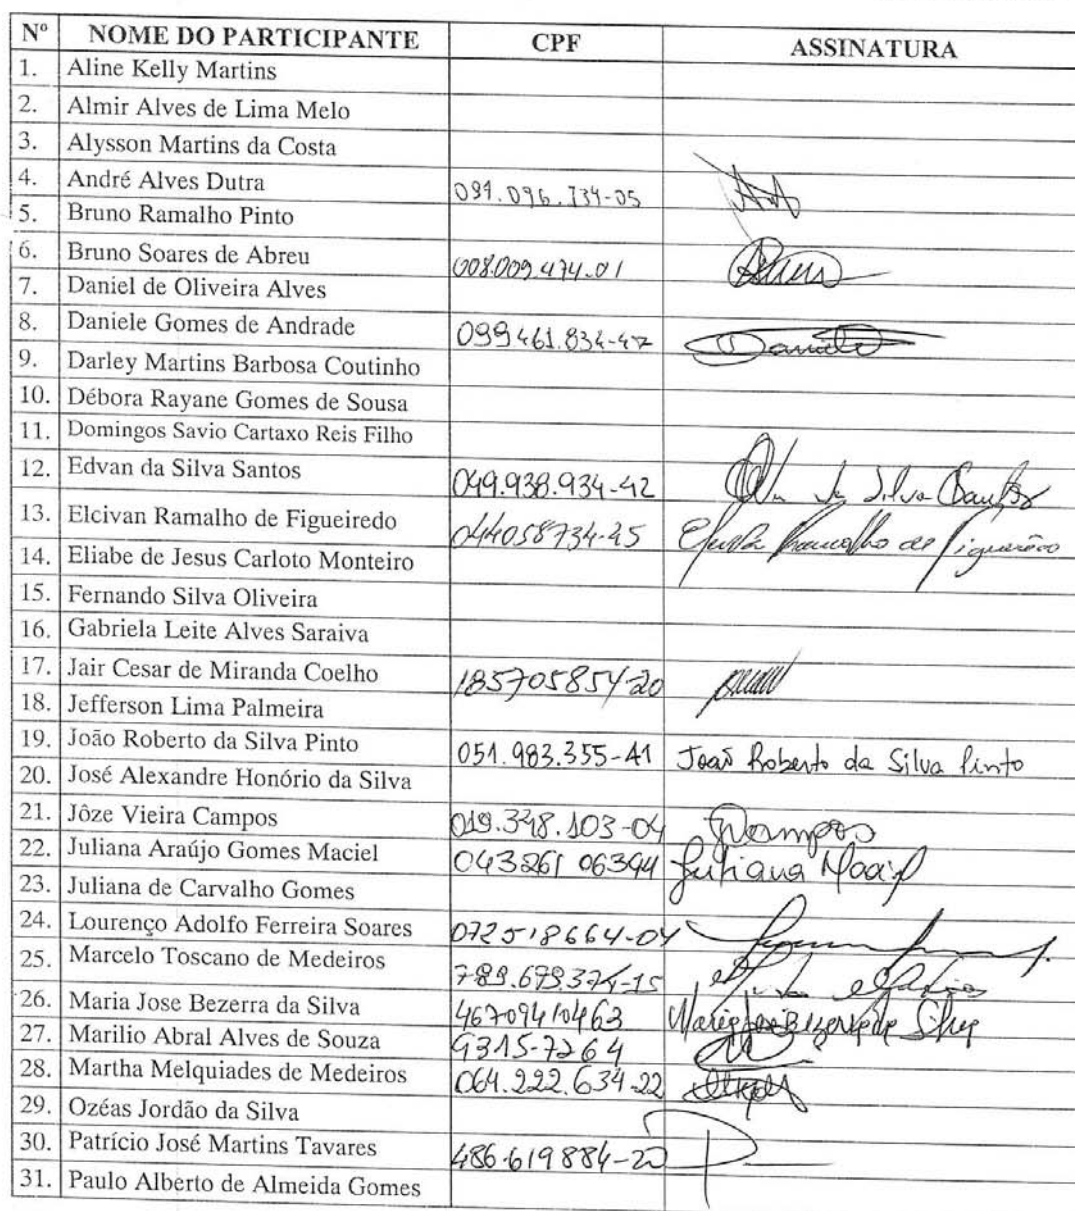 Nº NOME DO PARTICIPANTE CPF ASSINATURA
1. Aline Kelly Martins
2. Almir Alves de Lima Melo
3. Alysson Martins da Costa
4. André Alves Dutra 091.096.734-05
5. Bruno Ramalho Pinto
6. Bruno Soares de Abreu 008.009.474-01
7. Daniel de Oliveira Alves
8. Daniele Gomes de Andrade 099461.834-47 Daniele
9. Darley Martins Barbosa Coutinho
10. Débora Rayane Gomes de Sousa
11. Domingos Savio Cartaxo Reis Filho
12. Edvan da Silva Santos 049.938.934-42 da Silva Santos
13. Elcivan Ramalho de Figueiredo 044058734-45 Ramalho de Figueirêdo
14. Eliabe de Jesus Carloto Monteiro
15. Fernando Silva Oliveira
16. Gabriela Leite Alves Saraiva
17. Jair Cesar de Miranda Coelho 185705854-20
18. Jefferson Lima Palmeira
19. João Roberto da Silva Pinto 051.983.355-41 João Roberto da Silva Pinto
20. José Alexandre Honório da Silva
21. Jôze Vieira Campos 019.348.103-04 JVCampos
22. Juliana Araújo Gomes Maciel 043261 06394 Juliana Maciel
23. Juliana de Carvalho Gomes
24. Lourenço Adolfo Ferreira Soares 072518664-04
25. Marcelo Toscano de Medeiros 789.679.374-15
26. Maria Jose Bezerra da Silva 46709410463 Maria José Bezerra da Silva
27. Marilio Abral Alves de Souza 9315-7264
28. Martha Melquiades de Medeiros 064.222.634-22
29. Ozéas Jordão da Silva
30. Patrício José Martins Tavares 486.619884-20
31. Paulo Alberto de Almeida Gomes